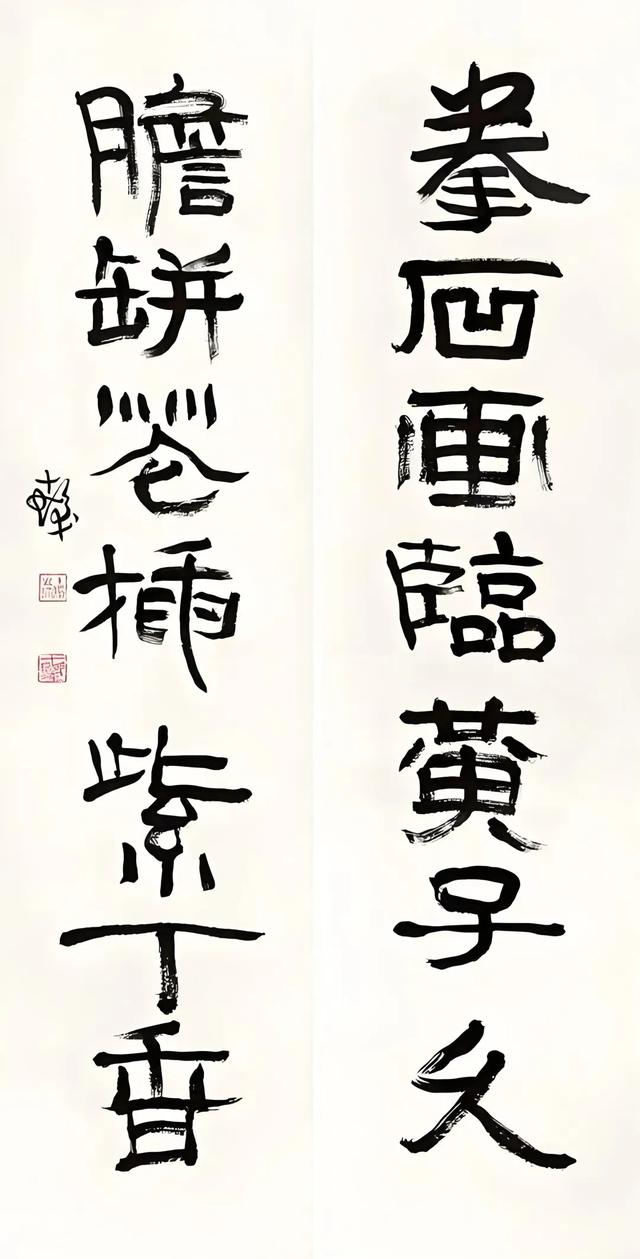 拳石画臨黄子久
膽缾花插紫丁香